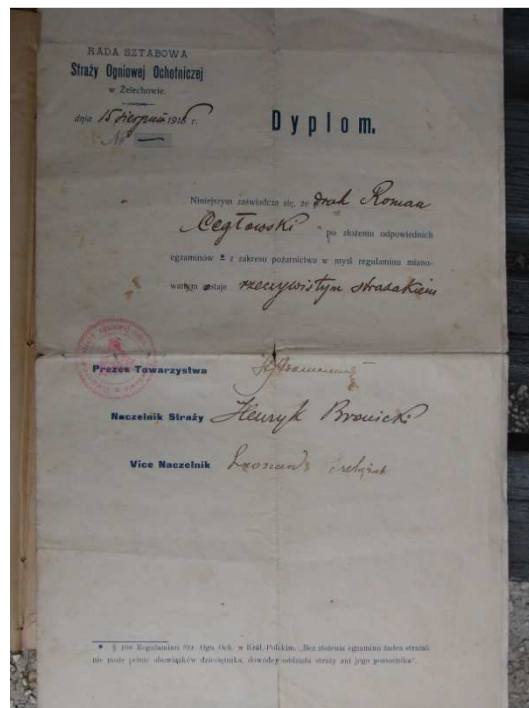 RADA SZTABOWA
Straży Ogniowej Ochotniczej
w Żelechowie.
dnia 15 sierpnia 1916 r.
№ —
Dyplom.
Niniejszym zaświadcza się, że druh Roman
Cegłowski po złożeniu odpowiednich
egzaminów * z zakresu pożarnictwa w myśl regulaminu miano-
wanym zostaje rzeczywistym strażakiem
Prezes Towarzystwa
Naczelnik Straży Henryk Bronicki
Vice Naczelnik
* § 100 Regulaminu Str. Ogn. Och. w Król. Polskim. „Bez złożenia egzaminu żaden strażak
nie może pełnić obowiązków dziesiętnika, dowódcy oddziału straży ani jego pomocnika".